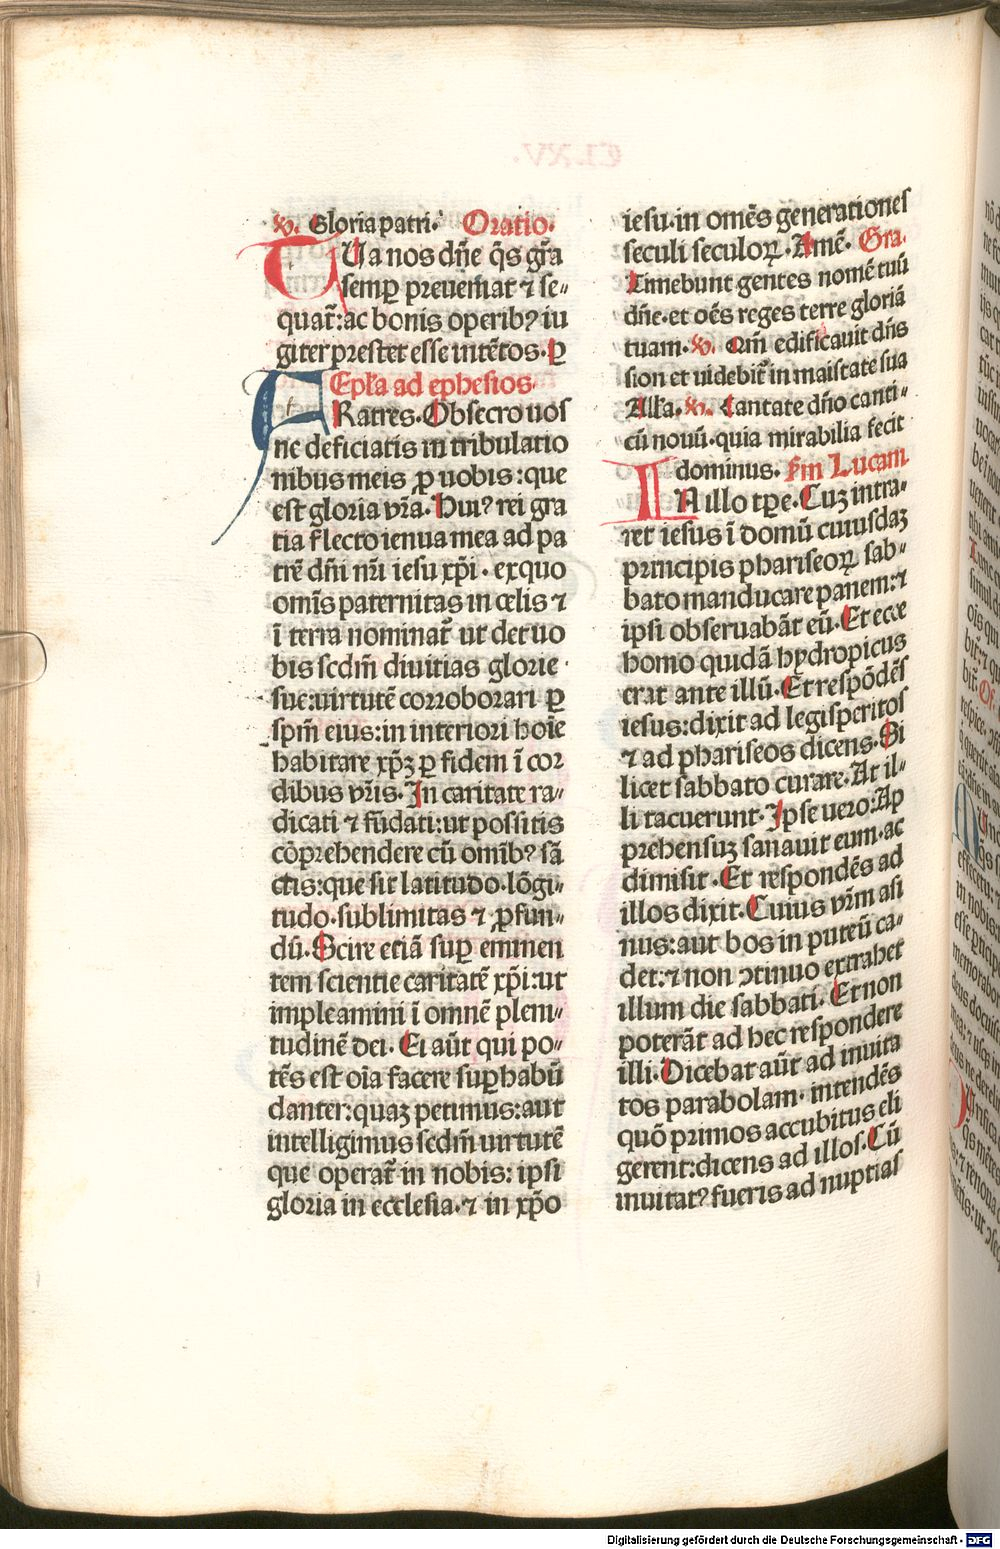 CLXV.
℣. Gloria patri. Oratio.
TUa nos dn̄e q̄s gr̄a
semꝑ preueniat ⁊ se⸗
quat̄:ac bonis operibꝰ iu
giter prestet esse intētos.ꝑ
Epl'a ad ephesios.
FRatres. Obsecro uos
ne deficiatis in tribulatio
nibus meis ꝓ uobis:que
est gloria vr̄a. Huiꝰ rei gra
tia flecto ienua mea ad pa
trē dn̄i nr̄i iesu xp̄i. exquo
om̄is paternitas in celis ⁊
ī terra nominat̄ ut det uo
bis scdm̄ diuitias glorie
sue:uirtutē corroborari ꝑ
spm̄ eius:in interiori hoīe
habitare xp̄ꝫ ꝑ fidem ī cor
dibus vr̄is. In caritate ra⸗
dicati ⁊ fūdati:ut possitis
cōprehendere cū omībꝰ sā
ctis:que sit latitudo.lōgi⸗
tudo.sublimitas ⁊ ꝓfun⸗
dū. Scire etiā suꝑ eminen
tem scientie caritatē xp̄i:ut
impleamini ī omnē pleni⸗
tudinē dei. Ei aūt qui po⸗
tēs est oīa facere suꝑhabū
danter:quaꝫ petimus:aut
intelligimus scdm̄ uirtutē
que operat̄ in nobis: ipsi
gloria in ecclesia.⁊ in xp̄o
iesu.in omēs generationes
seculi seculoꝝ. Amē. Gra.
Timebunt gentes nomē tuū
dn̄e.et oēs reges terre gloriā
tuam. ℣. Qm̄ edificauit dn̄s
sion et uidebit̄ in maiestate sua
All'a. ℣. Cantate dn̄o canti⸗
cū nouū.quia mirabilia fecit
dominus. Sm̄ Lucam.
IN illo tꝑe. Cuꝫ intra⸗
ret iesus ī domū cuiusdaꝫ
principis phariseoꝝ sab⸗
bato manducare panem:⁊
ipsi obseruabāt eū. Et ecce
homo quidā hydropicus
erat ante illū. Et respōdēs
iesus:dixit ad legisperitos
⁊ ad phariseos dicens. Si
licet sabbato curare. At il⸗
li tacuerunt. Ipse uero:Ap
prehensuꝫ sanauit eum.ac
dimisit. Et respondēs ad
illos dixit. Cuius vr̄m asi
nus:aut bos in puteū ca⸗
det:⁊ non ꝯtinuo extrahet
illum die sabbati. Et non
poterāt ad hec respondere
illi. Dicebat aūt ad inuita
tos parabolam. intendēs
quō primos accubitus eli
gerent:dicens ad illos. Cū
inuitatꝰ fueris ad nuptias
Digitalisierung gefördert durch die Deutsche Forschungsgemeinschaft - DFG